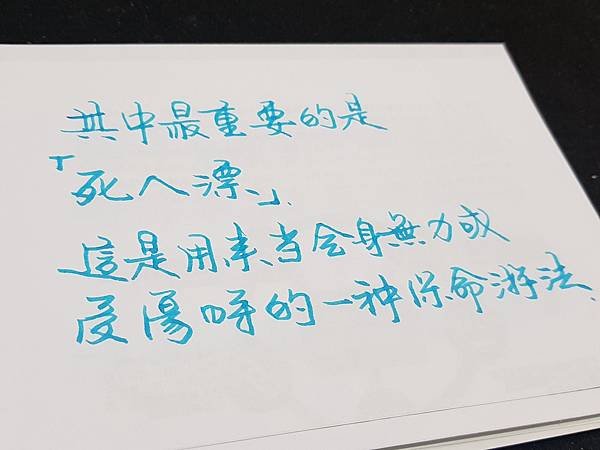 其中最重要的是
「死人漂」.
這是用来当全身無力或
受傷時的一种保命游法.